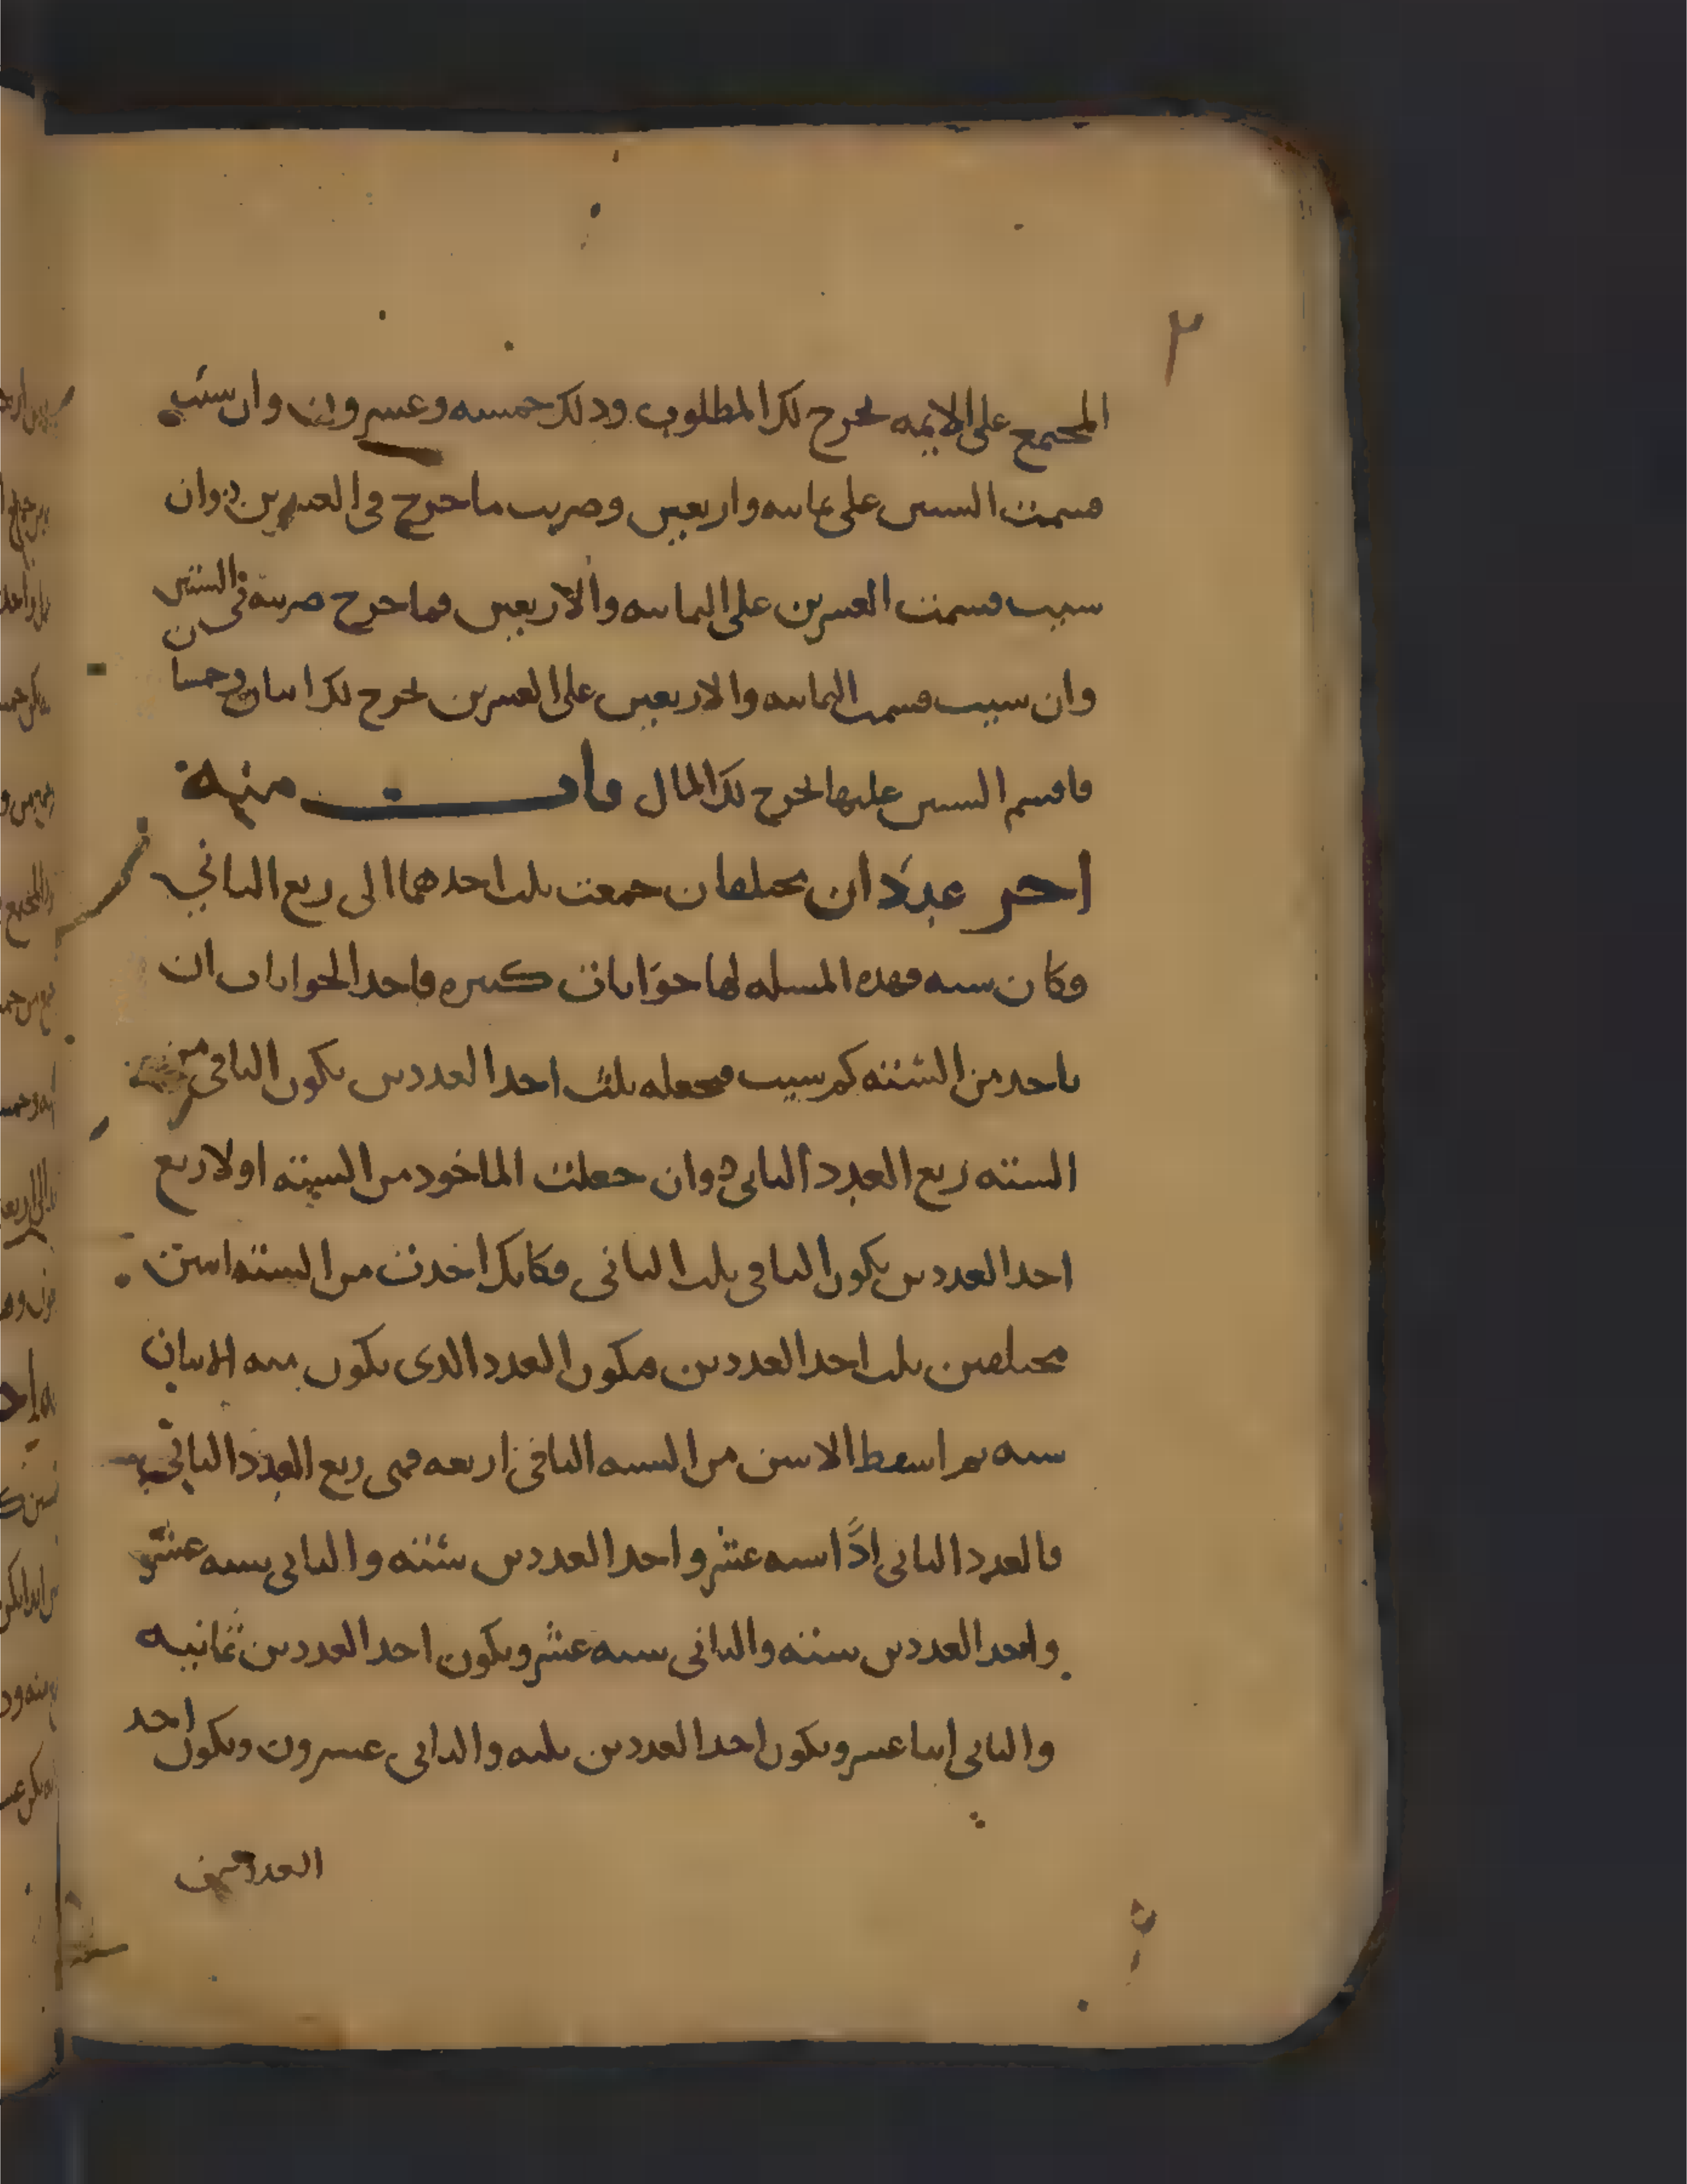 ٢
المجتمع على الايمه يخرج لك المطلوب وذلك خمسه وعشرون وان شئت
قسمت الستين على ثمانيه واربعين وضربت ما خرج في العشرين وان
شيت قسمت العشرين على الثمانيه والاربعين فما خرج ضربته في الستين
وان شيت قسمت الثمانيه والاربعين على العشرين يخرج لك اثنان وخمسا
فاقسم الستين عليها يخرج لك المال باب منه
اخر عددان مختلفان جمعت ثلث احدهما الى ربع الثاني
وكان سته فهذه المسله لها جوابات كثيره فاحد الجوابات ان
ياخذ من السته كم شيت فتجعله ثلث احد العددين يكون الباقي من
السته ربع العدد الثاني وان جعلت الماخوذ من السته اولا ربع
احد العددين يكون الباقي ثلث الثاني فكانك اخذت من السته اثنين
مختلفين ثلث احد العددين فيكون العدد الذي يكون منه الاثنان
سته ثم اسقط الاثنين من السته الباقي اربعه فهي ربع العدد الثاني
فالعدد الثاني اذًا سته عشر واحد العددين سته والثاني سته عشر
واحد العددين سته والثاني سته عشر ويكون احد العددين ثمانيه
والثاني اثنا عشر ويكون احد العددين ثلثه والثاني عشرون ويكون احد
العددين